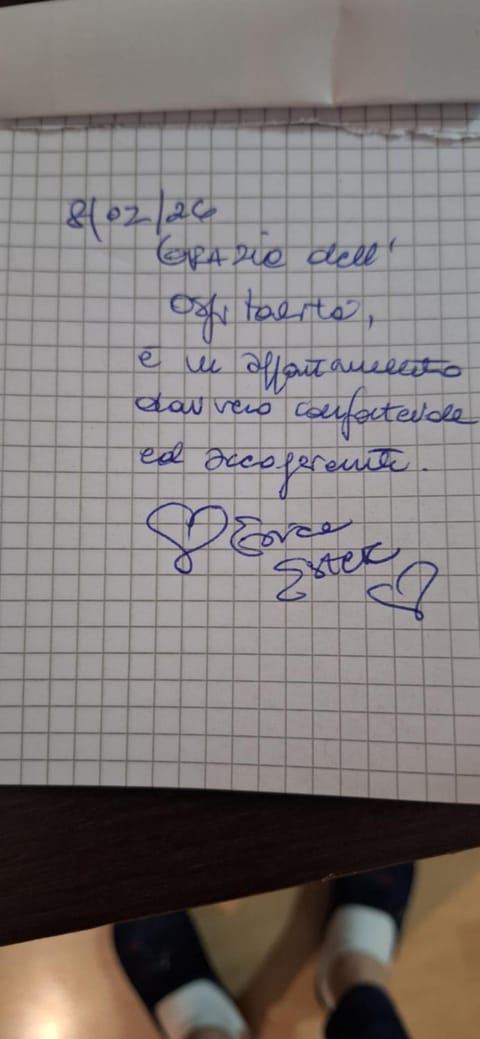 8/02/26
GRAZIE dell'
ospitalità,
è un appartamento
davvero confortevole
ed accogliente.
Ester